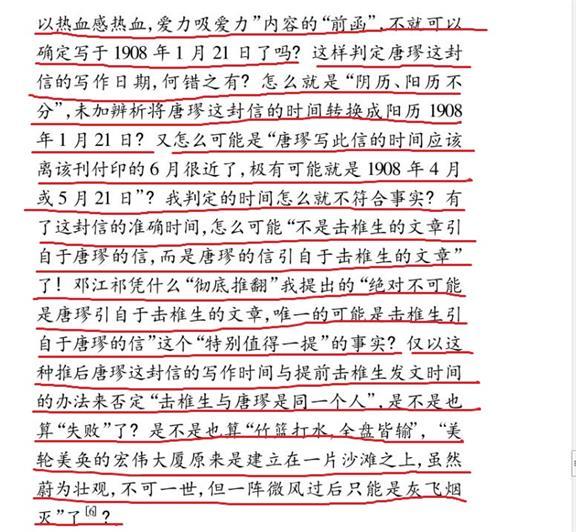 以热血感热血,爱力吸爱力”内容的“前函”,不就可以
确定写于1908年1月21日了吗? 这样判定唐璆这封
信的写作日期,何错之有? 怎么就是“阴历、阳历不
分”,未加辨析将唐璆这封信的时间转换成阳历1908
年1月21日? 又怎么可能是“唐璆写此信的时间应该
离该刊付印的6月很近了,极有可能就是1908年4月
或5月21日”? 我判定的时间怎么就不符合事实? 有
了这封信的准确时间,怎么可能“不是击椎生的文章引
自于唐璆的信,而是唐璆的信引自于击椎生的文章”
了! 邓江祁凭什么“彻底推翻”我提出的“绝对不可能
是唐璆引自于击椎生的文章,唯一的可能是击椎生引
自于唐璆的信”这个“特别值得一提”的事实? 仅以这
种推后唐璆这封信的写作时间与提前击椎生发文时间
的办法来否定“击椎生与唐璆是同一个人”,是不是也
算“失败”了? 是不是也算“竹篮打水,全盘皆输”,“美
轮美奂的宏伟大厦原来是建立在一片沙滩之上,虽然
蔚为壮观,不可一世,但一阵微风过后只能是灰飞烟
灭”了[6]?